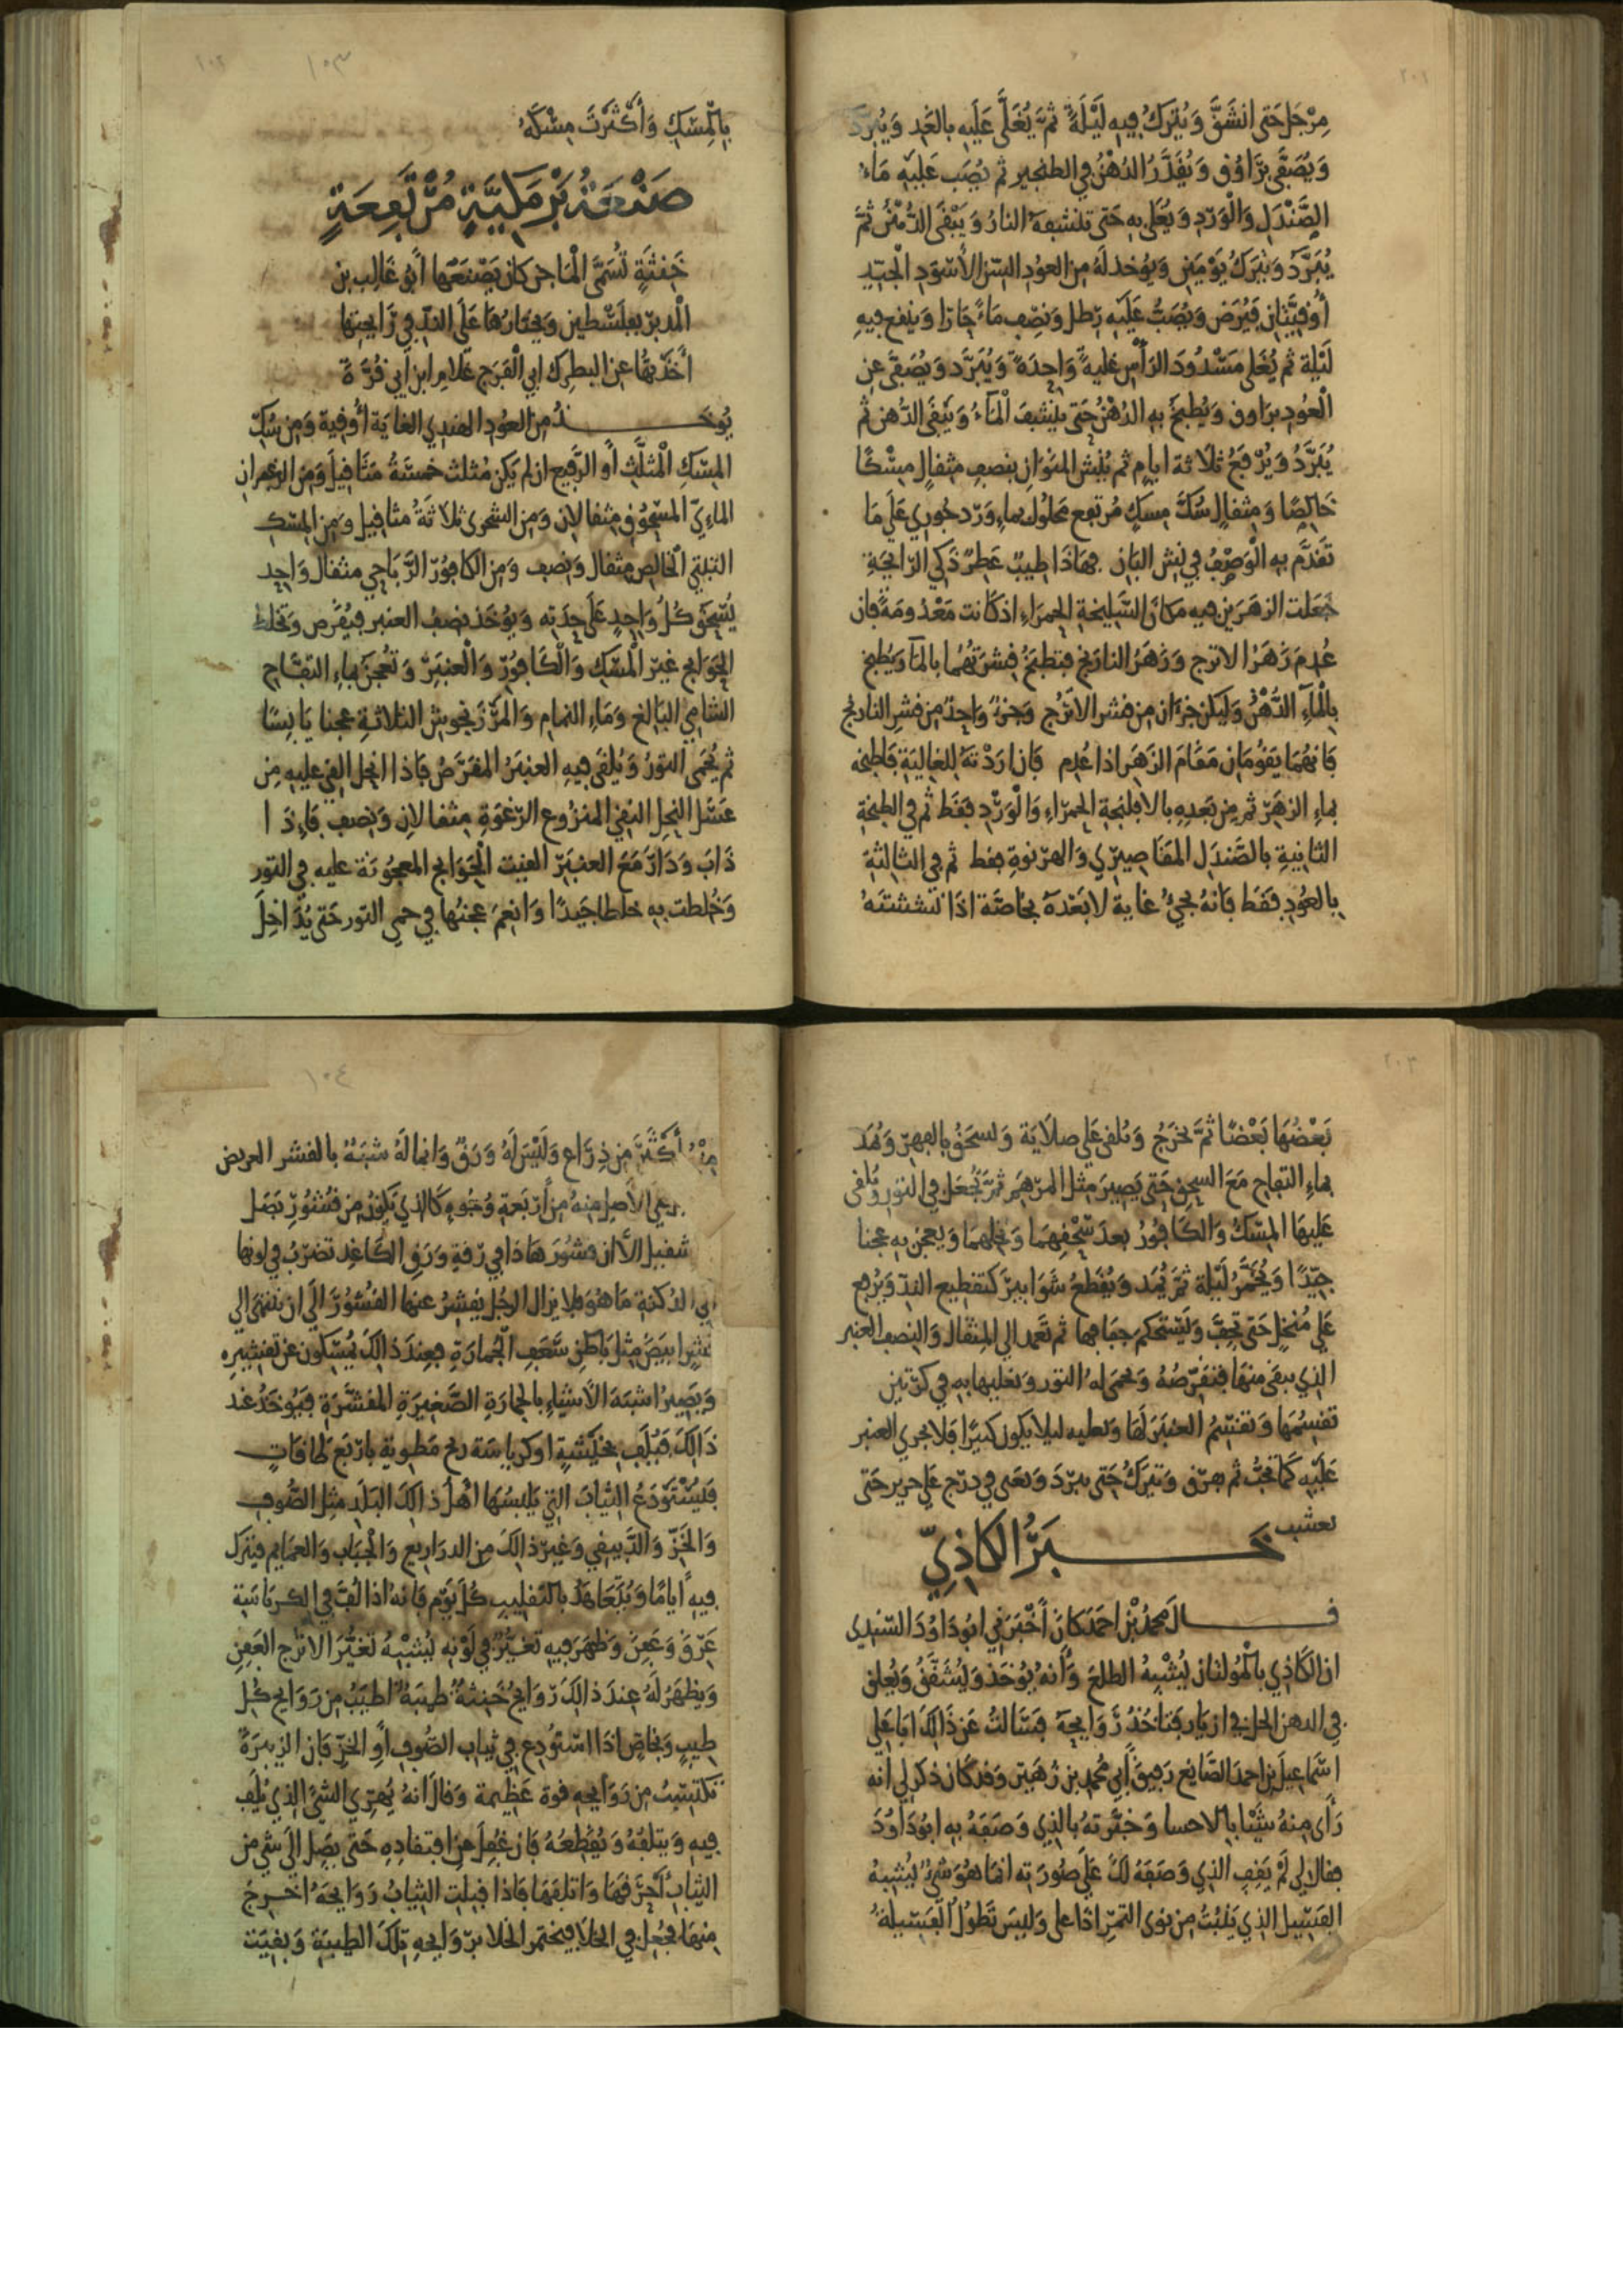 مِرْجَل حَتى انشَقَّ وَيُتْرَكُ فِيهِ لَيْلَةً ثُمَّ يُغَلَّى عَلَيهِ بالغَدِ وَيُبَرَّدُ
وَيُصَفَّى بِرَاوُق وَيُقَدَّرُ الدُهْنُ فِي الطنجير ثم يُصَب عَلَيْهِ مَاء
الصَّنْدَلِ وَالْوَرْدِ وَيُغْلى بِهِ حَتى تنشفهُ النارُ وَيَبْقَى الدُّهْنُ ثُمَّ
يُبَرَّدُ وَيُتْرَكُ يَوْمَيْنِ وَيُوخذ لَهُ مِن العودِ السن الأسْوَدِ الْجَيّدِ
أُوقِيَّتَانِ فَيُرَض وَيُصَبُّ عَلَيْهِ رِطل وَنِصْف مَاءً حَارا وَينقع فِيهِ
لَيْلة ثم يُغلى مَسْدُودَ الرَأسِ غليةً وَاحِدَةً وَيُبَرَّد وَيُصَفَّى عَنِ
الْعُودِ براوق وَيُطبَخُ بِهِ الدُهْنُ حَتى يَنْشفَ الْمَاءُ وَيَبْقَى الدُّهن ثم
يُبَرَّدُ وَيُرْفَعُ ثلاثة ايام ثم يُنَش المَنوَان بنصف مثقالٍ مِسْكًا
خَالِصًا وَمِثقالٍ سُكَّ مِسكٍ مُرتفع مَحلُول بماءِ وَرْد جُورِي عَلَى مَا
تَقَدَّم بِهِ الْوَصْفُ فِي نش البَانِ فهَاذَا طِيبٌ عَطِرٌ ذَكي الرّايحَةِ
جَعَلت الزهرَين فيه مَكانَ السَّلِيخةِ الحمرَاءِ اذ كَانت مَعْدُومَةً فإن
عُدِمَ زَهَرُ الاترج وَزَهَرُ النارَنج فتطبَخُ قِشرَتهُما بالمَا وَيُطبخ
بِالْمَآءِ الدُّهْنُ وَلْيَكُن جُزءَان مِن قشر الاترُجِ وَجزءٌ وَاحِدٌ مِن قشر النارنج
فَانهُمَا يَقومَان مَقَامَ الزَهَر اذا عُدِم فَان ارَدْتهُ للغَاليَةِ فَاطبخه
بماءِ الزهَرِ ثم مِن بَعدِهِ بالافلنجةِ الحمرَاءِ وَالْوَرْدِ فقَط ثم في الطبخةِ
الثانيةِ بالصَّندَل المقَاصِيرِي وَالهرنوةِ فقط ثم في الثالِثةِ
بِالعُودِ فقَط فانهُ يجيُ غاية لا بَعْدَهُ بخاصَّة اذَا نششتهُ
بالْمِسْكِ وَأَكْثَرْتَ مِسْكَهُ
صَنْعَةُ بَرْمَكِيَّةٍ مُرْتَفِعَةٍ
خَنِثَةٍ تُسَمَّى الْمَاجن كان يَصْنَعُهَا أبُو غَالِب بن
الْمُدبر بفلَسْطين وَيختارُهَا عَلَى الندّ في رَايحتِهَا
أخَذتُهَا عن البطرك ابي الْفَرَج غلام ابن أبي قُرَّة
يُوخَذُ مِن العوُدِ الهندِي الغايَة أُوقِية وَمِن سُكّ
المِسْكِ الْمثلَّثِ أو الرَّفيع ان لم يَكن مُثلث خمسَةُ مَثَاقِيل وَمِن الزعفران
المآءيّ المسْحُوق مثقالانِ وَمِن الشحرى ثلاثَةُ مثاقيل ومِن المِسْكِ
التبتي الْخالِص مثقال وَنِصف وَمِن الكافورْ الرَّبَاحِي مثقال وَاحِد
يُسْحَقُ كُلُ وَاحِدٍ عَلَى حِدَتِه وَيُؤخَذ نِصفُ العنبر فيُقَرَّض وَتُخلط
الحَوَايج غير الْمسْكِ وَالْكَافوُرِ وَالْعنبَرِ وَتُعجنُ بماءِ التفَّاح
الشامِي البَالِغ وَمَاءِ النمام وَالمَرْزَنجوش الثلاثةِ عجنا يَابِسًا
ثم يُحمَى التورُ وَيُلقَى فيهِ العنبَرُ المقرَّضُ فَاذا انحل القي عليهِ مِن
عَسَل النحل النقِي المنزوع الرّغوَةِ مثقالانِ وَنصف فَاءِذَا
ذَابَ وَدَارَ مَعَ العنبَر القيت الْحَوَايج المعجُونة عليه في التور
وَخُلطت به خلطا جَيدًا وَانعِمَ عجنُها في حمي التور حَتى يُدَاخِلَ
بَعْضُهَا بَعْضًا ثُمَّ تخرَجُ وَتلقى عَلى صلاَيَة وَتسحَقُ بالفِهر وَتُمَد
بماءِ التفاح مَعَ السحق حَتى يَصِيرَ مثل المرْهَم ثمَّ تُجعَل في التور وَيُلقى
عَليهَا المِسْكُ وَالكافُورُ بعدَ سَحْقِهمَا وَنخلهمَا وَيعجن به عجنا
جَيّدًا وَيُخمَّرُ لَيْلة ثمَّ يُمَد وَيُقَطعُ شَوَابيرَ كتقطِيع الندّ وَيُرفع
عَلى مُنخل حَتى تجِفَّ وَيَسْتَحكم جفافها ثم تَعمد الى المِثقال وَالنِصف العنبر
الذِي بقىَ مِنهَا فتقَرّضُهُ وَتحمى لهُ التور وَتغليها به في كرّتين
تقسِمُهَا وَتقسِمُ العنبَرَ لَهَا وَتعليه ليلا يَكون كثيرًا فلا يجري العنبر
عَلَيْهِ كَما يجبُ ثم يفرّق وَتترَكُ حَتى يبرّدَ وَتعبى في درج عَلى حرير حَتى
خَبَرُ الكَاذِيّ
قال محمدُ بْن احمَدَ كانَ أَخْبَرَني ابُو دَاوُدَ السّندِي
ان الكَاذِي بالْمُولتان يُشْبِهُ الطلعَ وَأنهُ يُوخَذ وَيُشَقَّقُ وَيُعلق
في الدهن الحل في ازيَار فتَاخُذُ رَوَايحِهُ فسَألتُ عَن ذَالِكَ ابَا عَلِي
اسْمَاعِيل بن احمدَ الصَّايغ رَفِيقَ أبي محمدِ بن زُهَير وَقد كَان ذكر لي انه
رَأى منهُ شيْئا بالاحسا وَخبَّرتهُ بالذِي وَصَفهُ به ابُو دَاوُدَ
فقال لِي لَمْ يَقِفِ الذِي وَصَفهُ لكَ عَلى صُورَتِه انمَا هُوَ شىْءٌ يُشبهُ
الفسِيل الذِي يَنْبُتُ مِن نوَى التمْرِ اذا على وَلَيسَ تَطُولُ الفَسِيلةُ
مِنْهُ أَكْثَرَ مِن ذِرَاع وَلَيْسَ لَهُ وَرَقٌ وَانما لَهُ شبَهٌ بالقشر العريض
الاَصِل مِنهُ مِن أرْبَعةِ وُجُوهٍ كَالذِي يَكونُ مِن قشُورِ بَصَل
الأ أن قشُورَ هَاذا في رقةِ وَرَقِ الكَاغد تضرِبُ في لونها
الى الدُكنةِ مَا هُوَ فلا يزال الرجُل يقشِرُ عنها القُشُورَ الَى ان ينتهى الى
ابيَض مِثل بَاطِن سَعَفِ الْجُمارَةِ فعِندَ ذالك يُمسِكون عن تقشِيره
وَيَصِيرُ اشبَهَ الأشياءِ بالجمارَةِ الصَّغيرَةِ المقشَّرَةِ فيُوخَذُ عند
ذَالِكَ فَيُلفّ بخَيشيةٍ او كرباسَة مَطوية بارْبَع طَاقاتٍ
فيُسْتَودَعُ الثيَابَ التِي يَلبسُهَا اهْلُ ذَالِكَ البَلَدِ مثل الصُّوفِ
وَالخَزِّ وَالدَّبِيقي وَغيرِ ذالكَ مِن الدرَاريع وَالْجبَابِ وَالعمَايم فيُترَك
فِيهِ ايامًا وَيُتَعَاهَدُ بالتقليب كُلَ يَوْم فَانهُ اذا لُفَّ في الكرباسَة
عَرِقَ وَعَفِنَ وَظهَرَ فِيهِ تغيُّرٌ في لَوْنِه يُشبهُ تغيُّرَ الاترُج العَفِنِ
وَيظهَرُ لهُ عِندَ ذالكَ رَوَايحُ خَنِثةٌ طيبَةٌ اطيَبُ مِن رَوَايح كُل
طِيبٍ وَبخاصٍ اذَا استُودِع في ثياب الصُّوفِ أوِ الخزّ فان
تكتسِبُ مِن رَوَايحهِ قوة عَظِيمة وَقالَ انهُ يُهرِي الشيءَ الذِي يُلف
فِيهِ وَيتلفهُ وَيُقَطِعُهُ فَان غفِلَ عَن افتقادِهِ حَتى يَصِل الَى شي مِن
الثيَابِ احْرَقهَا وَاتلفهَا فَاذا قبلتِ الثيَابُ رَوَايحَهُ اخرجَ
مِنهَا فجُعِل في الخلا فيختمر الخلا برَوَايحهِ تِلكَ الطيبَة وَبقيت